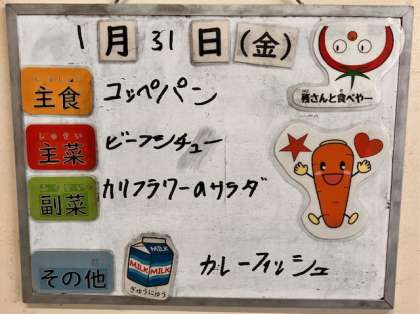 1月31日(金)
残さんと食べやー
主食 コッペパン
しゅさい
主菜 ビーフシチュー
副菜 カリフラワーのサラダ
その他
MILK
MILK MILK
ぎゅうにゅう
カレーフィッシュ